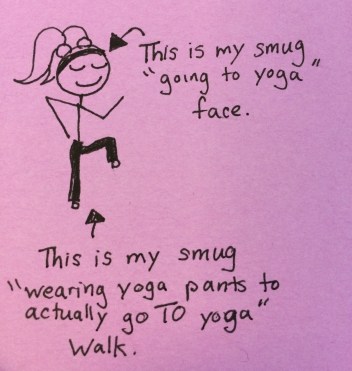 This is my smug
"going to yoga"
face.
This is my smug
"wearing yoga pants to
actually go TO yoga"
Walk.